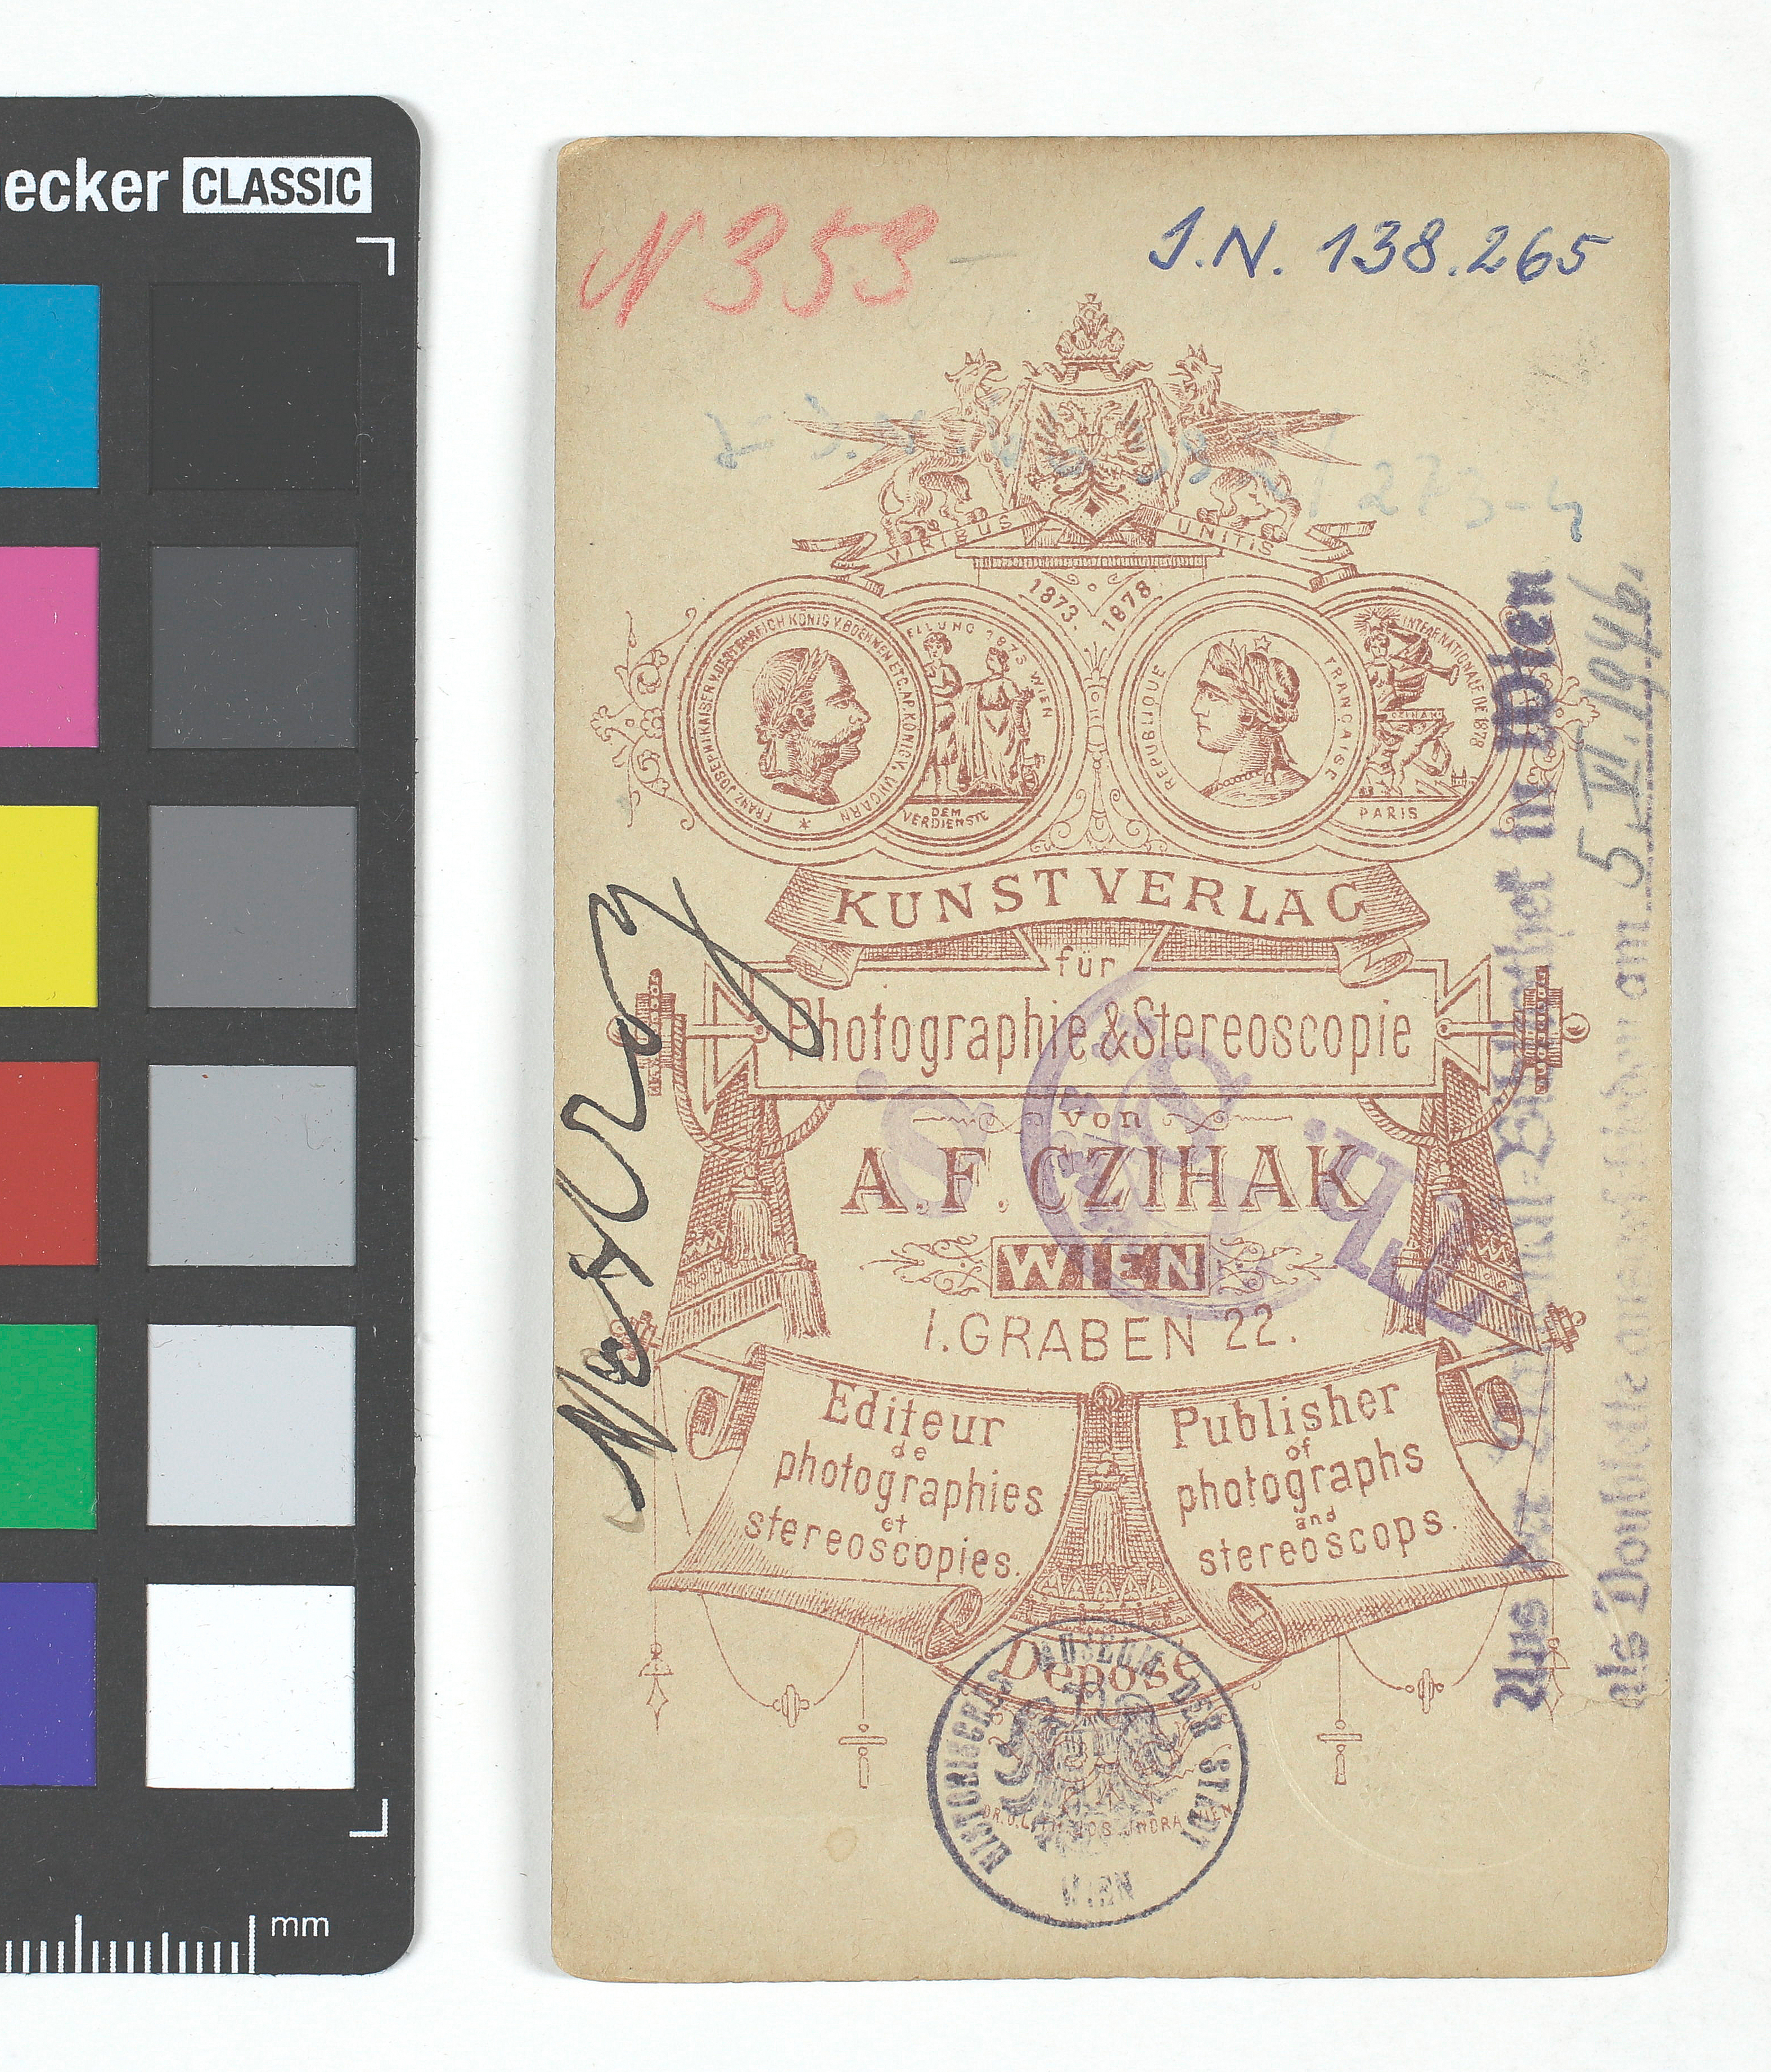 ecker CLASSIC
N 353
J.N. 138.265
273-4
VIRIBUS UNITIS
1873. 1878.
FRANZ JOSEPH I. KAISER V. OESTERREICH KÖNIG V. BOEHMEN ETC. AP. KÖNIG V. UNGARN
ELLUNG 1873 WIEN
DEM
VERDIENSTE
REPUBLIQUE FRANÇAISE
INTERNATIONALE DE 1878
CZIHAK
PARIS
KUNSTVERLAG
für
Photographie & Stereoscopie
von
A. F. CZIHAK
WIEN
I. GRABEN 22.
Editeur
de
photographies
et
stereoscopies.
Publisher
of
photographs
and
stereoscops.
Déposé
HISTORISCHES MUSEUM DER STADT WIEN
Nestroy
Aus der in Wien
als Doublette ausgeschieden am 5. VI. 1940
mm